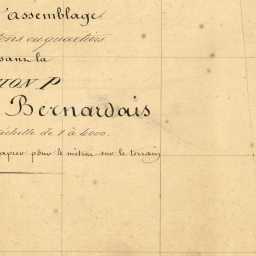 'assemblage
dans la
ION P
Bernardais
échelle de 1 à 4000.
papier pour le mètre sur le terrain